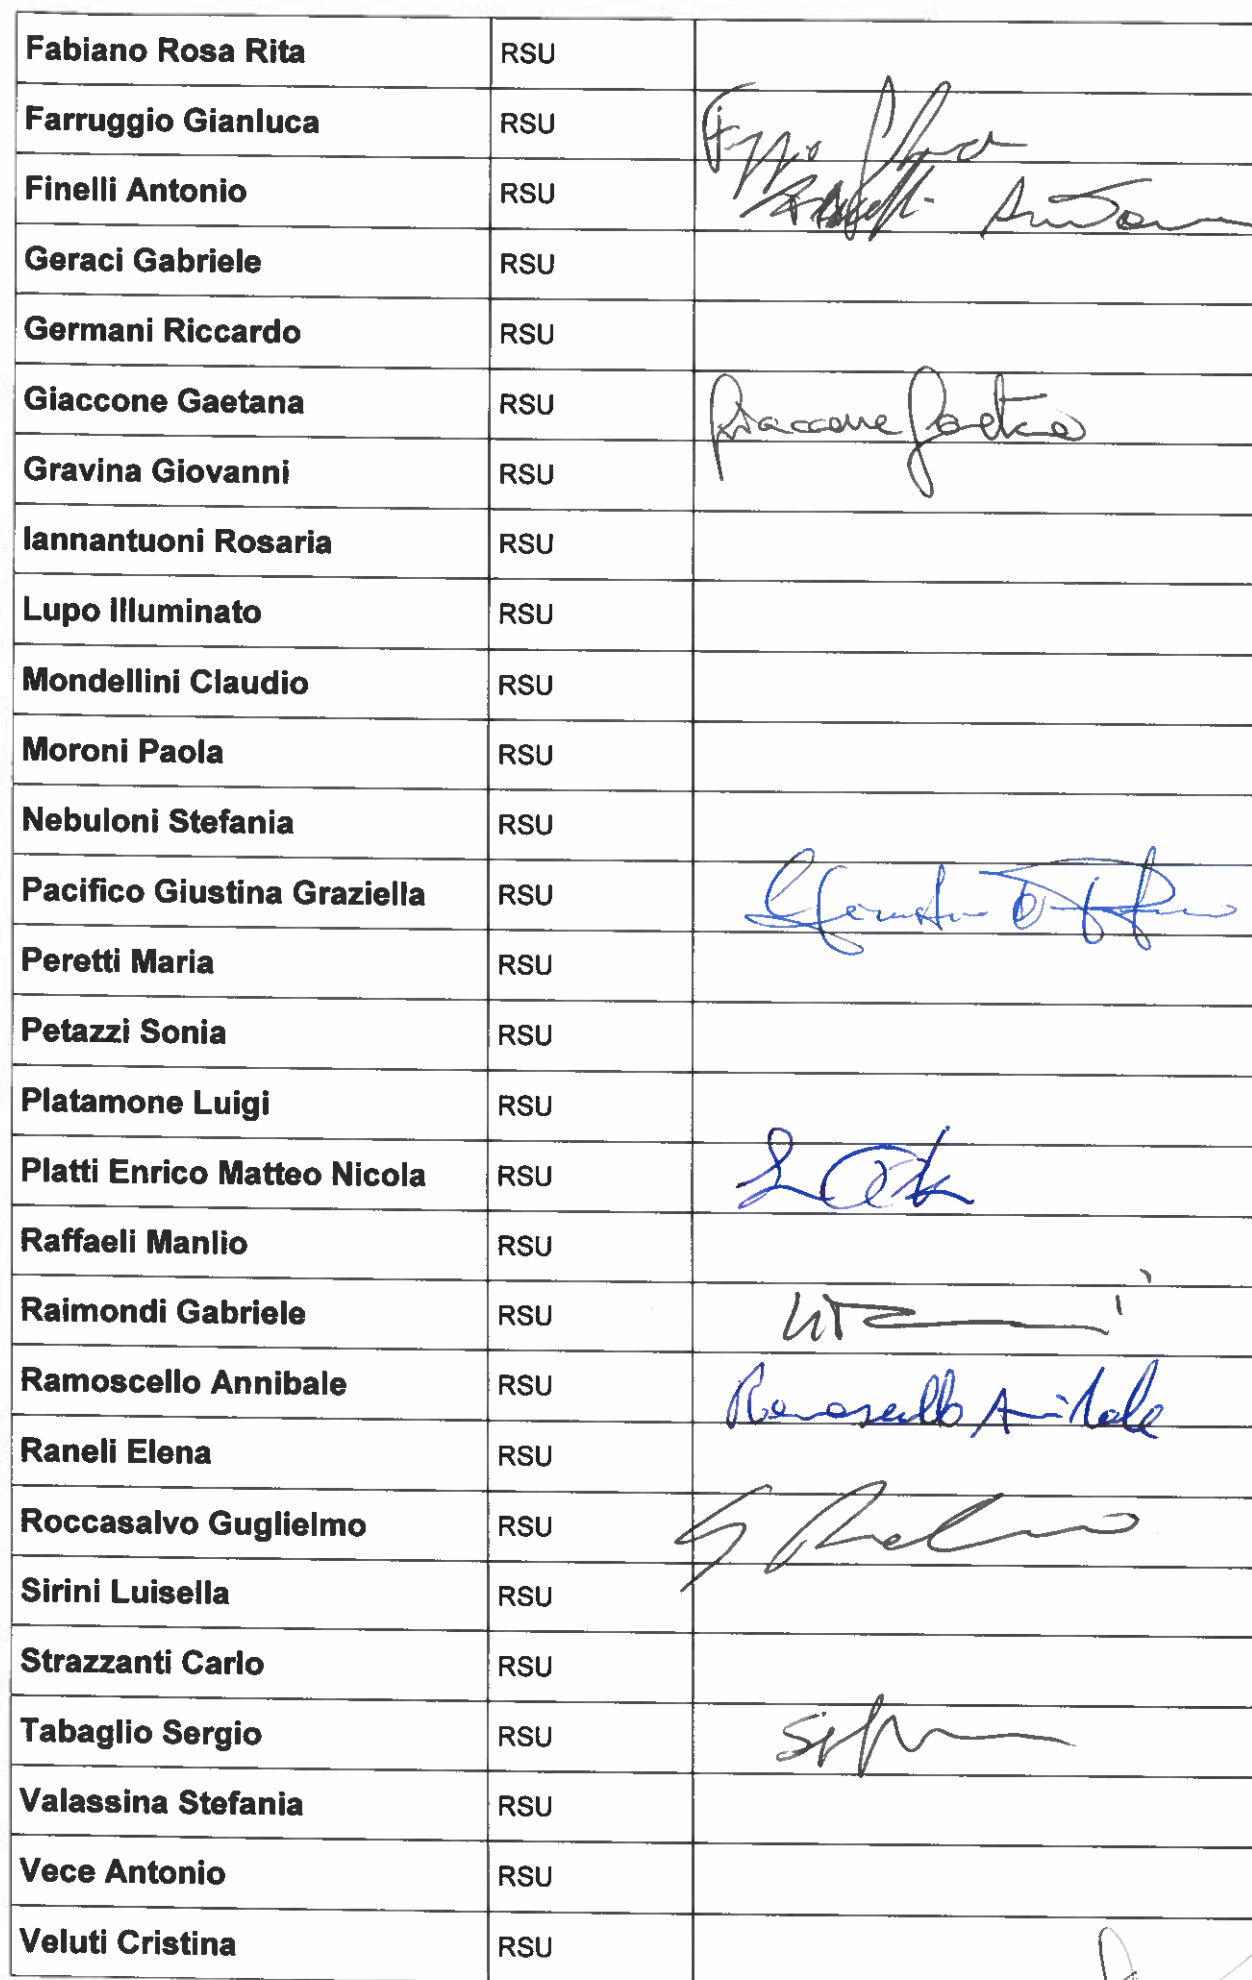 Fabiano Rosa Rita RSU
Farruggio Gianluca RSU
Finelli Antonio RSU
Geraci Gabriele RSU
Germani Riccardo RSU
Giaccone Gaetana RSU Giaccone Gaetana
Gravina Giovanni RSU
Iannantuoni Rosaria RSU
Lupo Illuminato RSU
Mondellini Claudio RSU
Moroni Paola RSU
Nebuloni Stefania RSU
Pacifico Giustina Graziella RSU
Peretti Maria RSU
Petazzi Sonia RSU
Platamone Luigi RSU
Platti Enrico Matteo Nicola RSU
Raffaeli Manlio RSU
Raimondi Gabriele RSU
Ramoscello Annibale RSU Ramoscello Annibale
Raneli Elena RSU
Roccasalvo Guglielmo RSU
Sirini Luisella RSU
Strazzanti Carlo RSU
Tabaglio Sergio RSU
Valassina Stefania RSU
Vece Antonio RSU
Veluti Cristina RSU